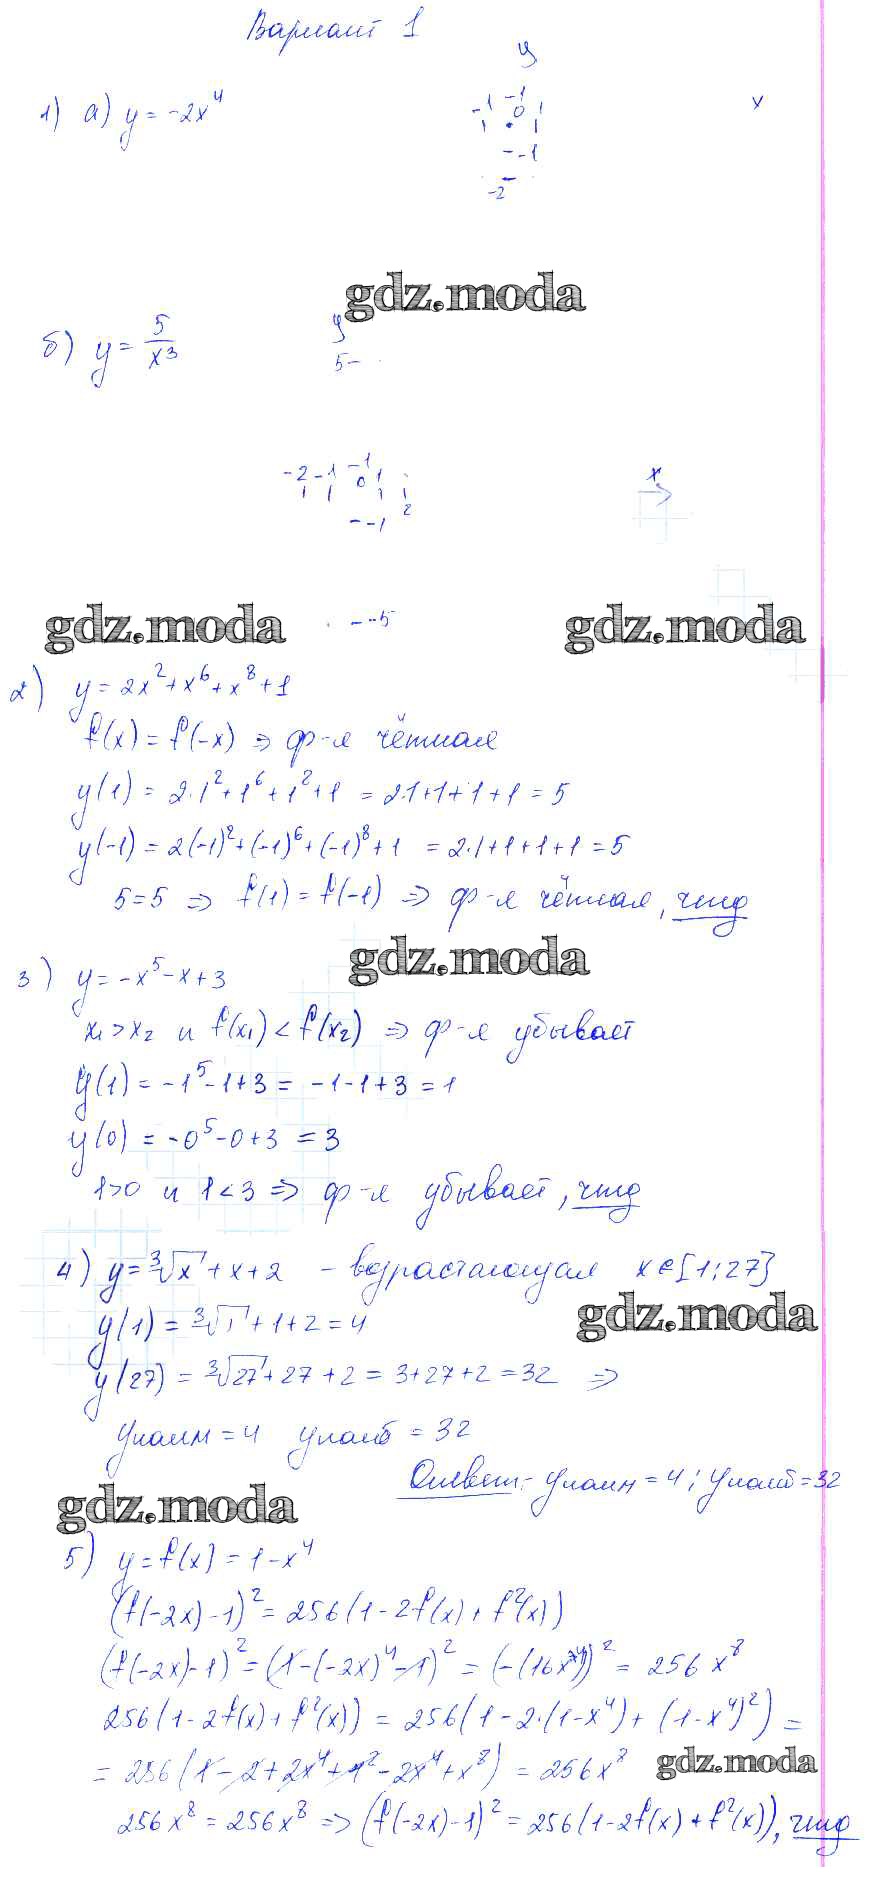 Вариант 1
1) а) y = -2x⁴
y
-1 -1 0 1
x
- -1
-2
gdz.moda
б) y = 5/x³
y
5-
-2 -1 -1 0 1
x
2
- -1
gdz.moda gdz.moda
- -5
2) y = 2x² + x⁶ + x⁸ + 1
f(x) = f(-x) ⇒ ф-я чётная
y(1) = 2·1² + 1⁶ + 1⁸ + 1 = 2·1+1+1+1 = 5
y(-1) = 2(-1)² + (-1)⁶ + (-1)⁸ + 1 = 2·1+1+1+1 = 5
5=5 ⇒ f(1) = f(-1) ⇒ ф-я чётная, чтд
gdz.moda
3) y = -x⁵ - x + 3
x₁ > x₂ и f(x₁) < f(x₂) ⇒ ф-я убывает
y(1) = -1⁵ - 1 + 3 = -1 - 1 + 3 = 1
y(0) = -0⁵ - 0 + 3 = 3
1>0 и 1<3 ⇒ ф-я убывает, чтд
4) y = ³√x + x + 2 - возрастающая x∈[1;27]
gdz.moda
y(1) = ³√1 + 1 + 2 = 4
y(27) = ³√27 + 27 + 2 = 3+27+2 = 32 ⇒
yнаим = 4 yнаиб = 32
Ответ: yнаим = 4; yнаиб = 32
gdz.moda
5) y = f(x) = 1 - x⁴
(f(-2x) - 1)² = 256(1 - 2f(x) + f²(x))
(f(-2x) - 1)² = (1 - (-2x)⁴ - 1)² = (-(16x⁴))² = 256x⁸
256(1 - 2f(x) + f²(x)) = 256(1 - 2·(1-x⁴) + (1-x⁴)²) =
= 256(1 - 2 + 2x⁴ + 1² - 2x⁴ + x⁸) = 256x⁸
gdz.moda
256x⁸ = 256x⁸ ⇒ (f(-2x) - 1)² = 256(1 - 2f(x) + f²(x)), чтд